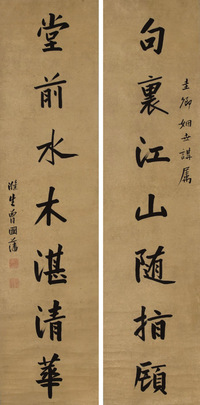 圭卿姻世講属
句裏江山随指顧
堂前水木湛清華
滌生曾國藩